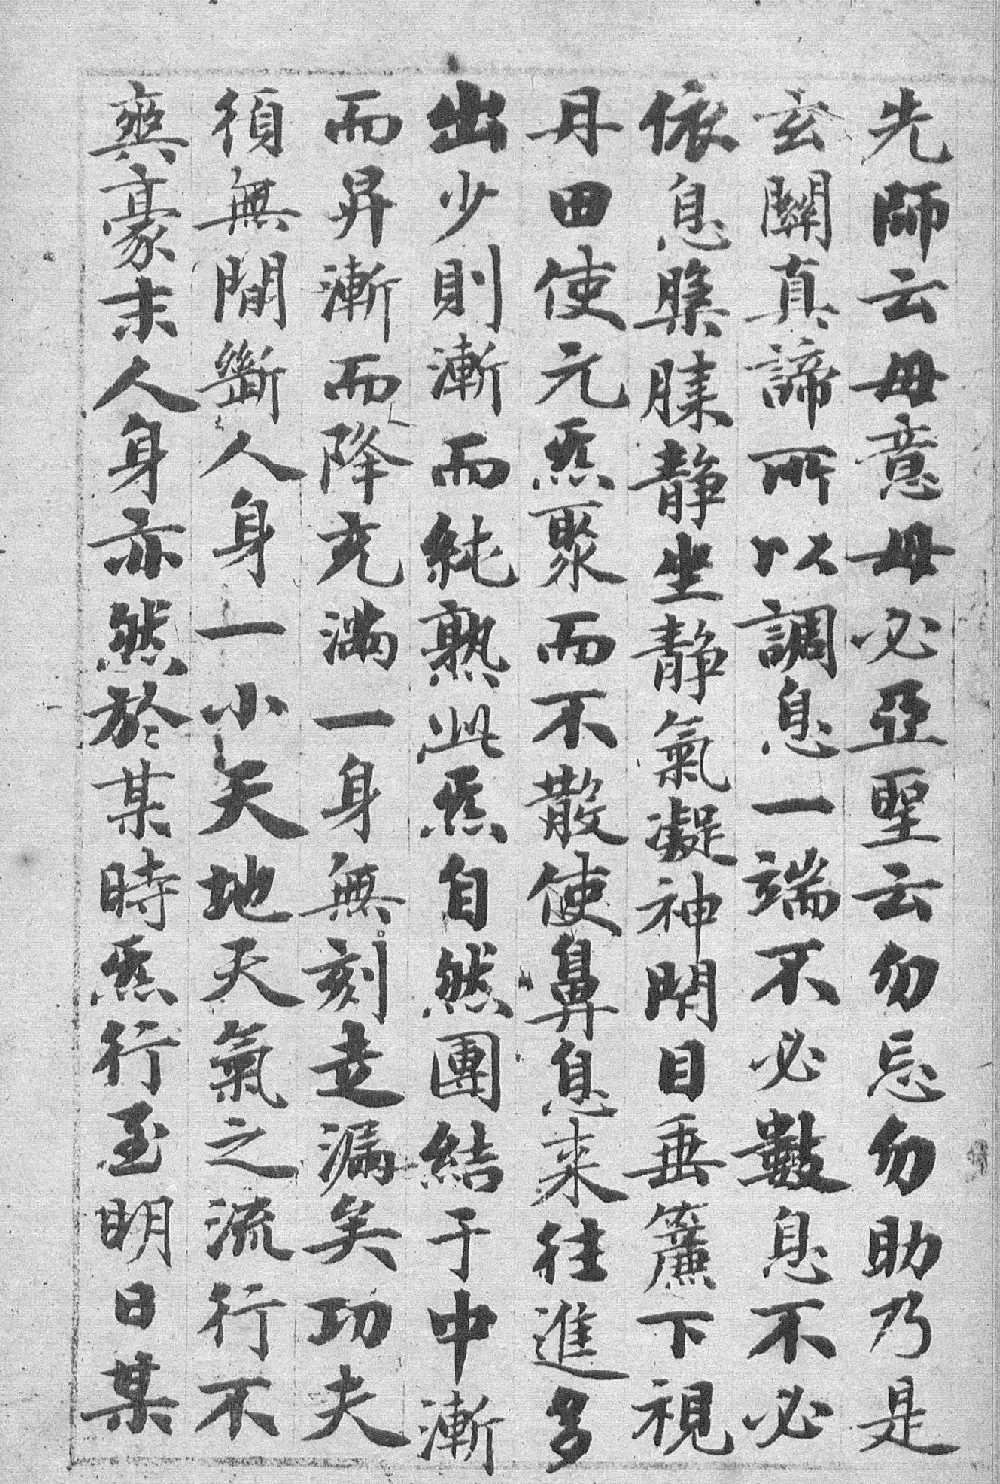 先師云毋意毋必亞聖云勿忘勿助乃是
玄關真諦所以調息一端不必數息不必
依息集膝静坐静氣凝神閉目垂簾下視
丹田使元炁聚而不散使鼻息来往進多
出少則漸而純熟此炁自然團結于中漸
而昇漸而降充滿一身無刻走漏矣功夫
須無間斷人身一小天地天氣之流行不
爽豪末人身亦然於某時炁行至明日某